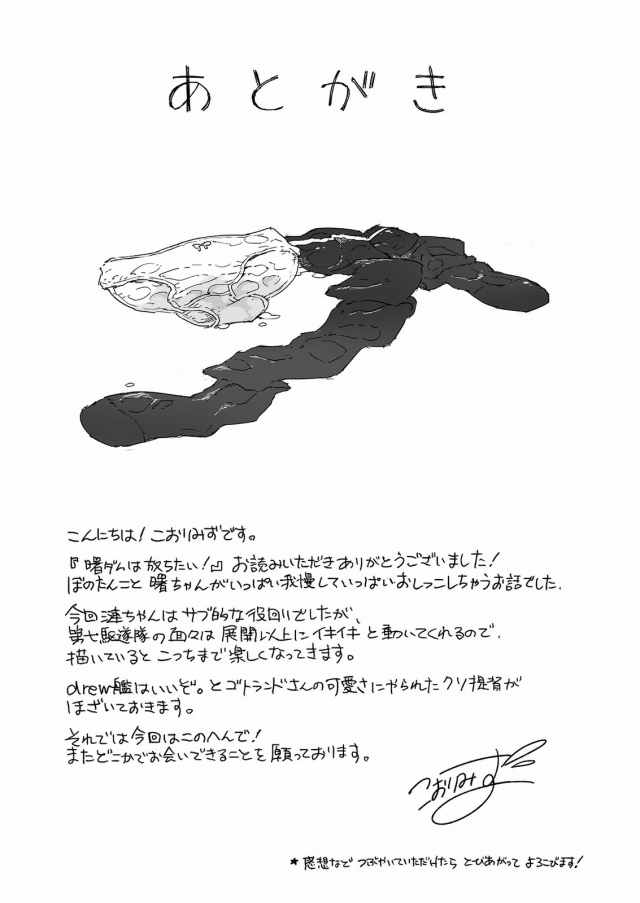 あとがき
こんにちは！こおりみずです。
『曙ダムは放ちたい！』お読みいただきありがとうございました！
ぼのたんこと 曙ちゃんがいっぱい我慢していっぱいおしっこしちゃうお話でした。
今回漣ちゃんはサブ的な役回りでしたが、
第七駆逐隊の面々は 展開以上にイキイキと動いてくれるので、
描いていると こっちまで楽しくなってきます。
drew艦はいいぞ。とゴトランドさんの可愛さにやられたクソ提督が
ほざいておきます。
それでは今回はこのへんで！
またどこかでお会いできることを願っております。
こおりみず
* 感想など つぶやいていただけたら とびあがって よろこびます！